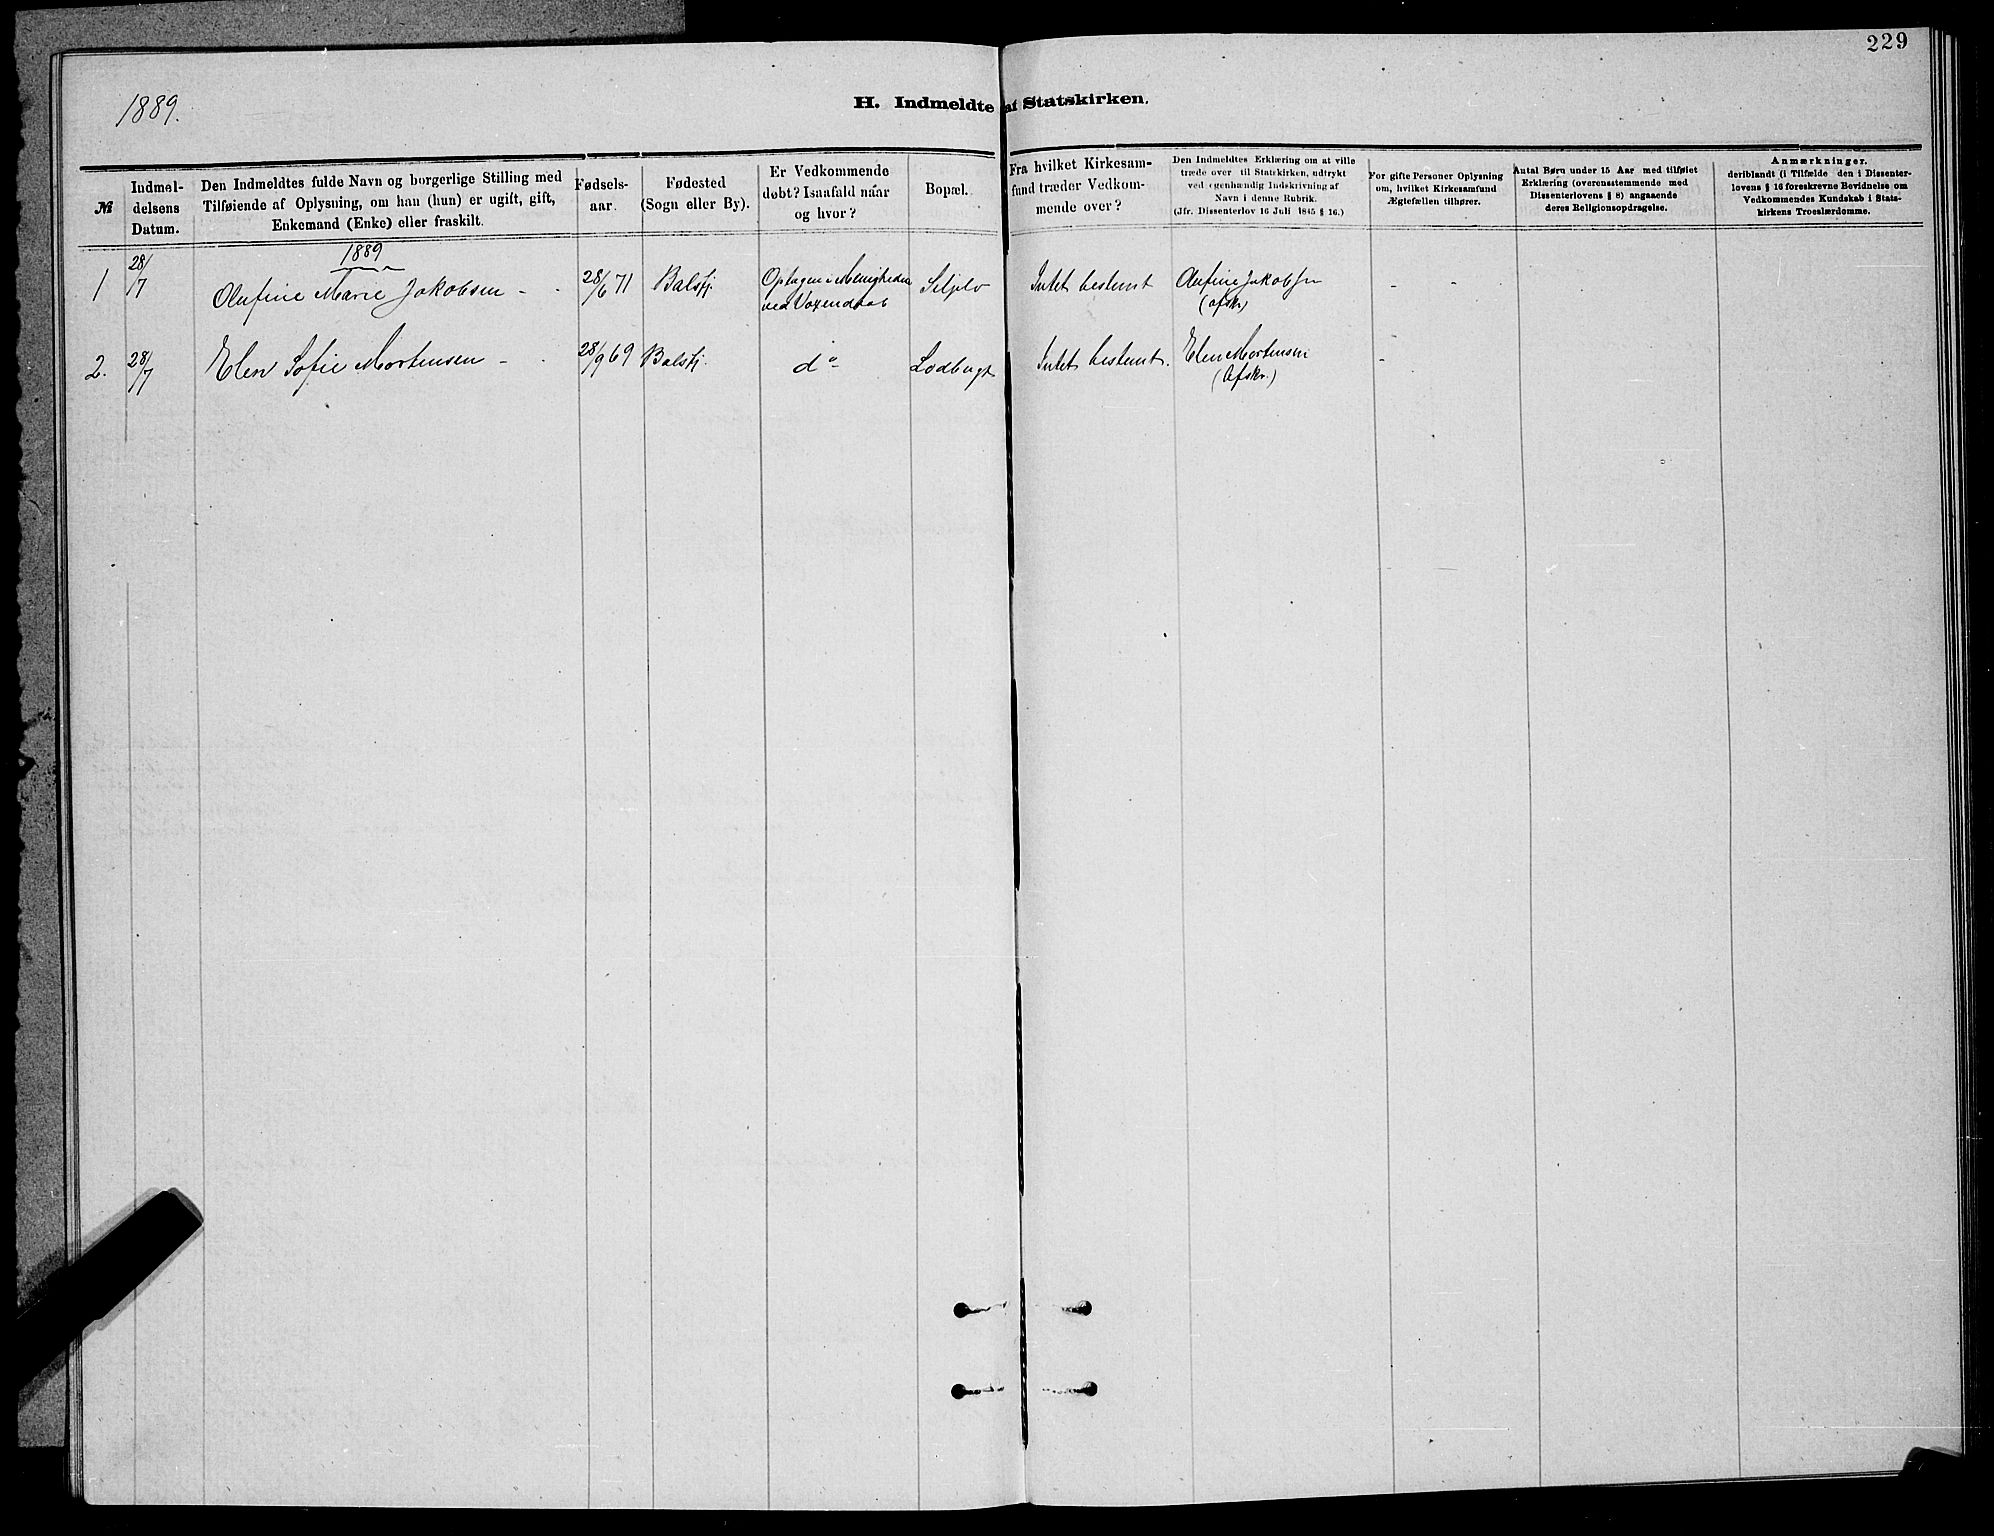 229
1889.
H. Indmeldte af Statskirken.
№
Indmel-
delsens
Datum.
Den Indmeldtes fulde Navn og borgerlige Stilling med
Tilføiende af Oplysning, om han (hun) er ugift, gift,
Enkemand (Enke) eller fraskilt.
Fødsels-
aar.
Fødested
(Sogn eller By).
Er Vedkommende
døbt? Isaafald naar
og hvor?
Bopæl.
Fra hvilket Kirkesam-
fund træder Vedkom-
mende over?
Den Indmeldtes Erklæring om at ville
træde over til Statskirken, udtrykt
ved egenhændig Indskrivning af
Navn i denne Rubrik.
(Jfr. Dissenterlov 16 Juli 1845 § 16.)
For gifte Personer Oplysning
om, hvilket Kirkesamfund
Ægtefællen tilhører.
Antal Børn under 15 Aar med tilføiet
Erklæring (overensstemmende med
Dissenterlovens § 8) angaaende
deres Religionsopdragelse.
Anmærkninger.
deriblandt (i Tilfælde den i Dissenter-
lovens § 16 foreskrevne Bevidnelse om
Vedkommendes Kundskab i Stats-
kirkens Troeslærdomme.
1889
1 28/7 Olufine Marie Jakobsen - - 28/6 71 Balsfj. Optagen i Menigheden Seljelv Intet bestemt Olufine Jakobsen - -
ved Voxendaab (Afskr)
2. 28/7 Elen Sofie Mortensen - - 28/9 69 Balsfj. do Lodbugt Intet bestemt. Elen Mortensen -
(Afskr.)